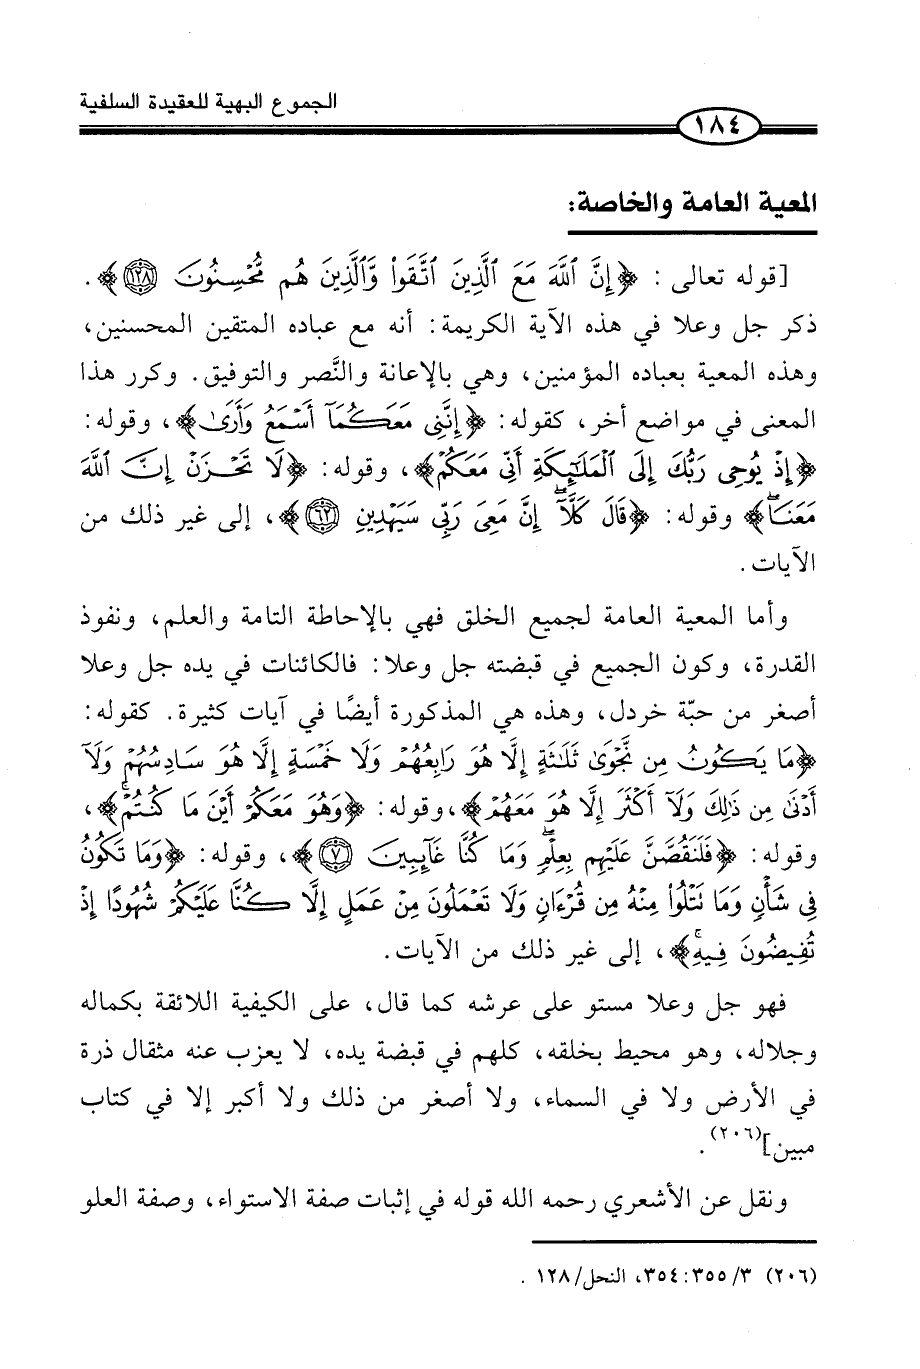 الجموع البهية للعقيدة السلفية
١٨٤
المعية العامة والخاصة:
[قوله تعالى : ﴿إِنَّ ٱللَّهَ مَعَ ٱلَّذِينَ ٱتَّقَوا۟ وَّٱلَّذِينَ هُم مُّحْسِنُونَ ١٢٨﴾ .
ذكر جل وعلا في هذه الآية الكريمة: أنه مع عباده المتقين المحسنين،
وهذه المعية بعباده المؤمنين، وهي بالإعانة والنَّصر والتوفيق. وكرر هذا
المعنى في مواضع أخر، كقوله: ﴿إِنَّنِى مَعَكُمَآ أَسْمَعُ وَأَرَىٰ﴾، وقوله:
﴿إِذْ يُوحِى رَبُّكَ إِلَى ٱلْمَلَـٰٓئِكَةِ أَنِّى مَعَكُمْ﴾، وقوله: ﴿لَا تَحْزَنْ إِنَّ ٱللَّهَ
مَعَنَاۖ﴾ وقوله: ﴿قَالَ كَلَّآۖ إِنَّ مَعِىَ رَبِّى سَيَهْدِينِ ٦٢﴾، إلى غير ذلك من
الآيات.
وأما المعية العامة لجميع الخلق فهي بالإحاطة التامة والعلم، ونفوذ
القدرة، وكون الجميع في قبضته جل وعلا: فالكائنات في يده جل وعلا
أصغر من حبّة خردل، وهذه هي المذكورة أيضًا في آيات كثيرة. كقوله:
﴿مَا يَكُونُ مِن نَّجْوَىٰ ثَلَـٰثَةٍ إِلَّا هُوَ رَابِعُهُمْ وَلَا خَمْسَةٍ إِلَّا هُوَ سَادِسُهُمْ وَلَآ
أَدْنَىٰ مِن ذَٰلِكَ وَلَآ أَكْثَرَ إِلَّا هُوَ مَعَهُمْ﴾،وقوله: ﴿وَهُوَ مَعَكُمْ أَيْنَ مَا كُنتُمْۚ﴾،
وقوله: ﴿فَلَنَقُصَّنَّ عَلَيْهِم بِعِلْمٍۖ وَمَا كُنَّا غَآئِبِينَ ٧﴾، وقوله: ﴿وَمَا تَكُونُ
فِى شَأْنٍ وَمَا تَتْلُوا۟ مِنْهُ مِن قُرْءَانٍ وَلَا تَعْمَلُونَ مِنْ عَمَلٍ إِلَّا كُنَّا عَلَيْكُمْ شُهُودًا إِذْ
تُفِيضُونَ فِيهِۚ﴾، إلى غير ذلك من الآيات.
فهو جل وعلا مستو على عرشه كما قال، على الكيفية اللائقة بكماله
وجلاله، وهو محيط بخلقه، كلهم في قبضة يده، لا يعزب عنه مثقال ذرة
في الأرض ولا في السماء، ولا أصغر من ذلك ولا أكبر إلا في كتاب
مبين](٢٠٦).
ونقل عن الأشعري رحمه الله قوله في إثبات صفة الاستواء، وصفة العلو
(٢٠٦) ٣/ ٣٥٥:٣٥٤، النحل/ ١٢٨ .